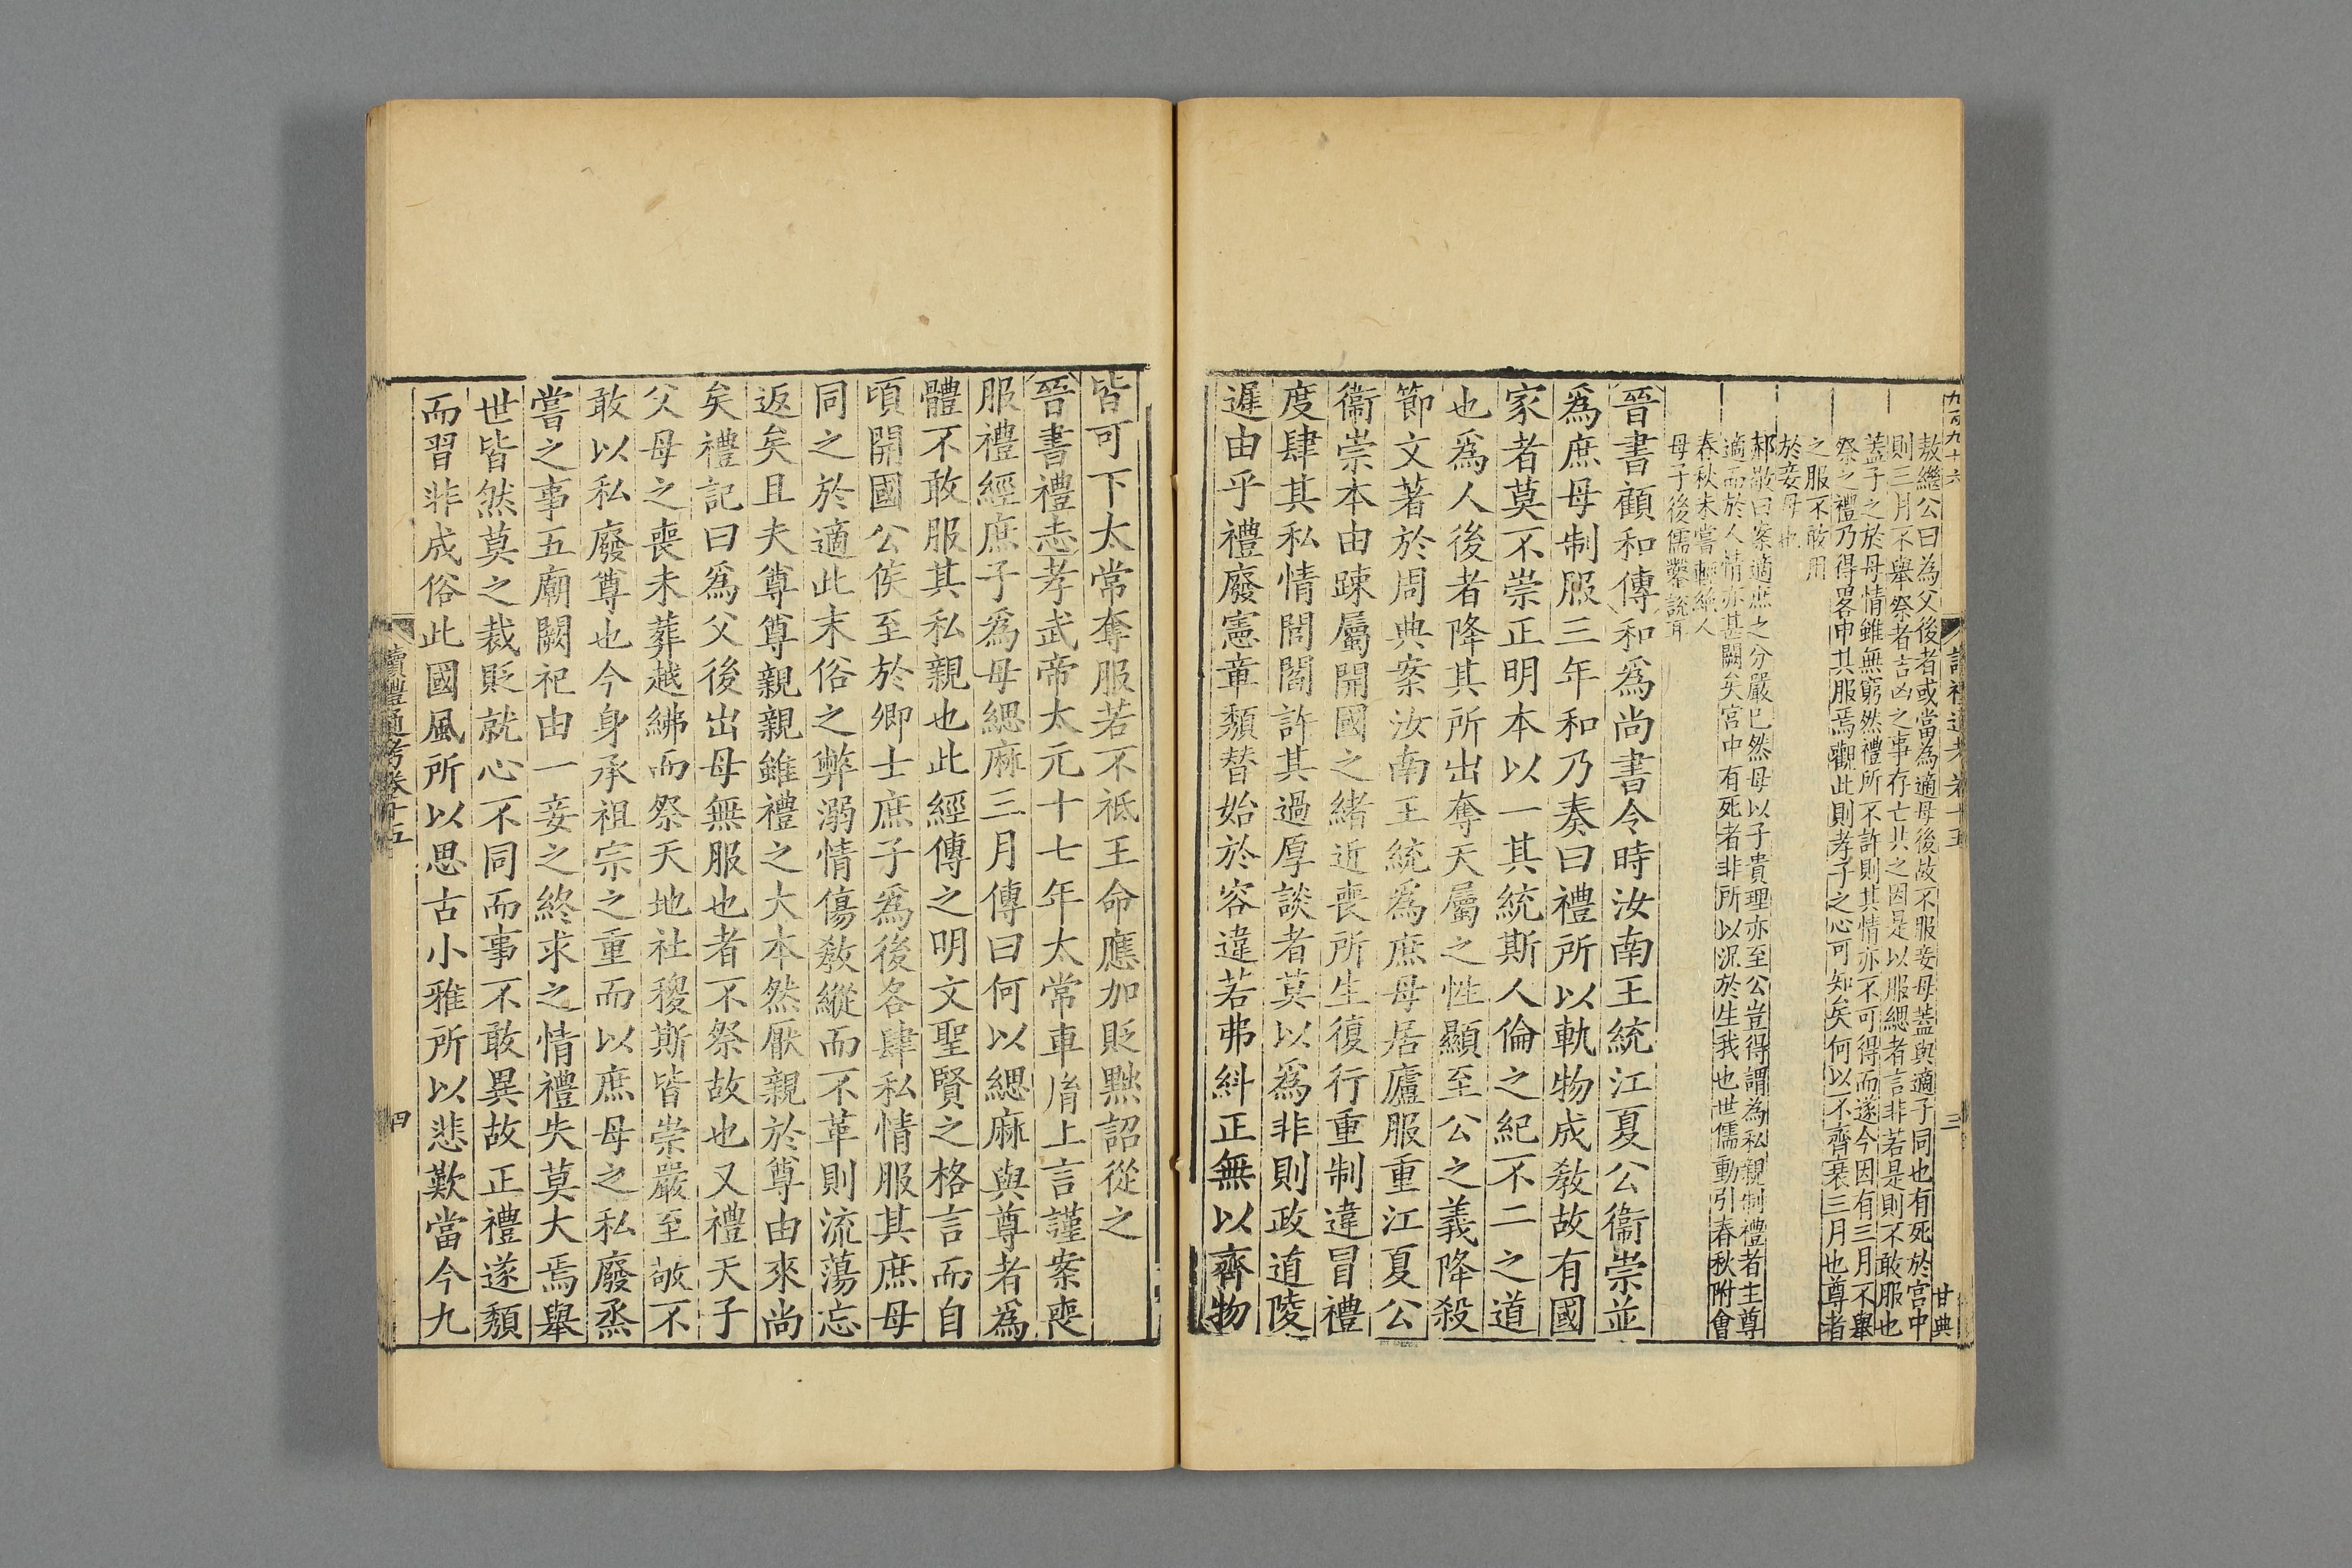 九百九十六
讀禮通考卷十五
三
甘典
敖繼公曰為父後者或當為適母後故不服妾母葢與適子同也有死於宮中
則三月不舉祭者吉凶之事存亡共之因是以服緦者言非若是則不敢服也
葢子之於母情雖無窮然禮所不許則其情亦不可得而遂今因有三月不舉
祭之禮乃得畧申其服焉觀此則孝子之心可知矣何以不齊衰三月也尊者
之服不敢用
於妾母也
郝敬曰案適庶之分嚴已然母以子貴理亦至公豈得謂為私親制禮者主尊
適而於人情亦甚闕矣宮中有死者非所以況於生我也世儒動引春秋附會
春秋未嘗輕絶人
母子後儒鑿說耳
晉書顧和傳和爲尚書令時汝南王統江夏公衞崇並
爲庶母制服三年和乃奏曰禮所以軌物成敎故有國
家者莫不崇正明本以一其統斯人倫之紀不二之道
也爲人後者降其所出奪天屬之性顯至公之義降殺
節文著於周典案汝南王統爲庶母居廬服重江夏公
衞崇本由踈屬開國之緖近喪所生復行重制違冒禮
度肆其私情閭閻許其過厚談者莫以爲非則政道陵
遲由乎禮廢憲章頽替始於容違若弗糾正無以齊物
皆可下太常奪服若不祗王命應加貶黜詔從之
晉書禮志孝武帝太元十七年太常車胤上言謹案喪
服禮經庶子爲母緦麻三月傳曰何以緦麻與尊者爲
體不敢服其私親也此經傳之明文聖賢之格言而自
頃開國公侯至於卿士庶子爲後各肆私情服其庶母
同之於適此末俗之弊溺情傷敎縱而不革則流蕩忘
返矣且夫尊尊親親雖禮之大本然厭親於尊由來尚
矣禮記曰爲父後出母無服也者不祭故也又禮天子
父母之喪未葬越紼而祭天地社稷斯皆崇嚴至敬不
敢以私廢尊也今身承祖宗之重而以庶母之私廢烝
嘗之事五廟闕祀由一妾之終求之情禮失莫大焉舉
世皆然莫之裁貶就心不同而事不敢異故正禮遂頽
而習非成俗此國風所以思古小雅所以悲歎當今九
讀禮通考卷十五
四